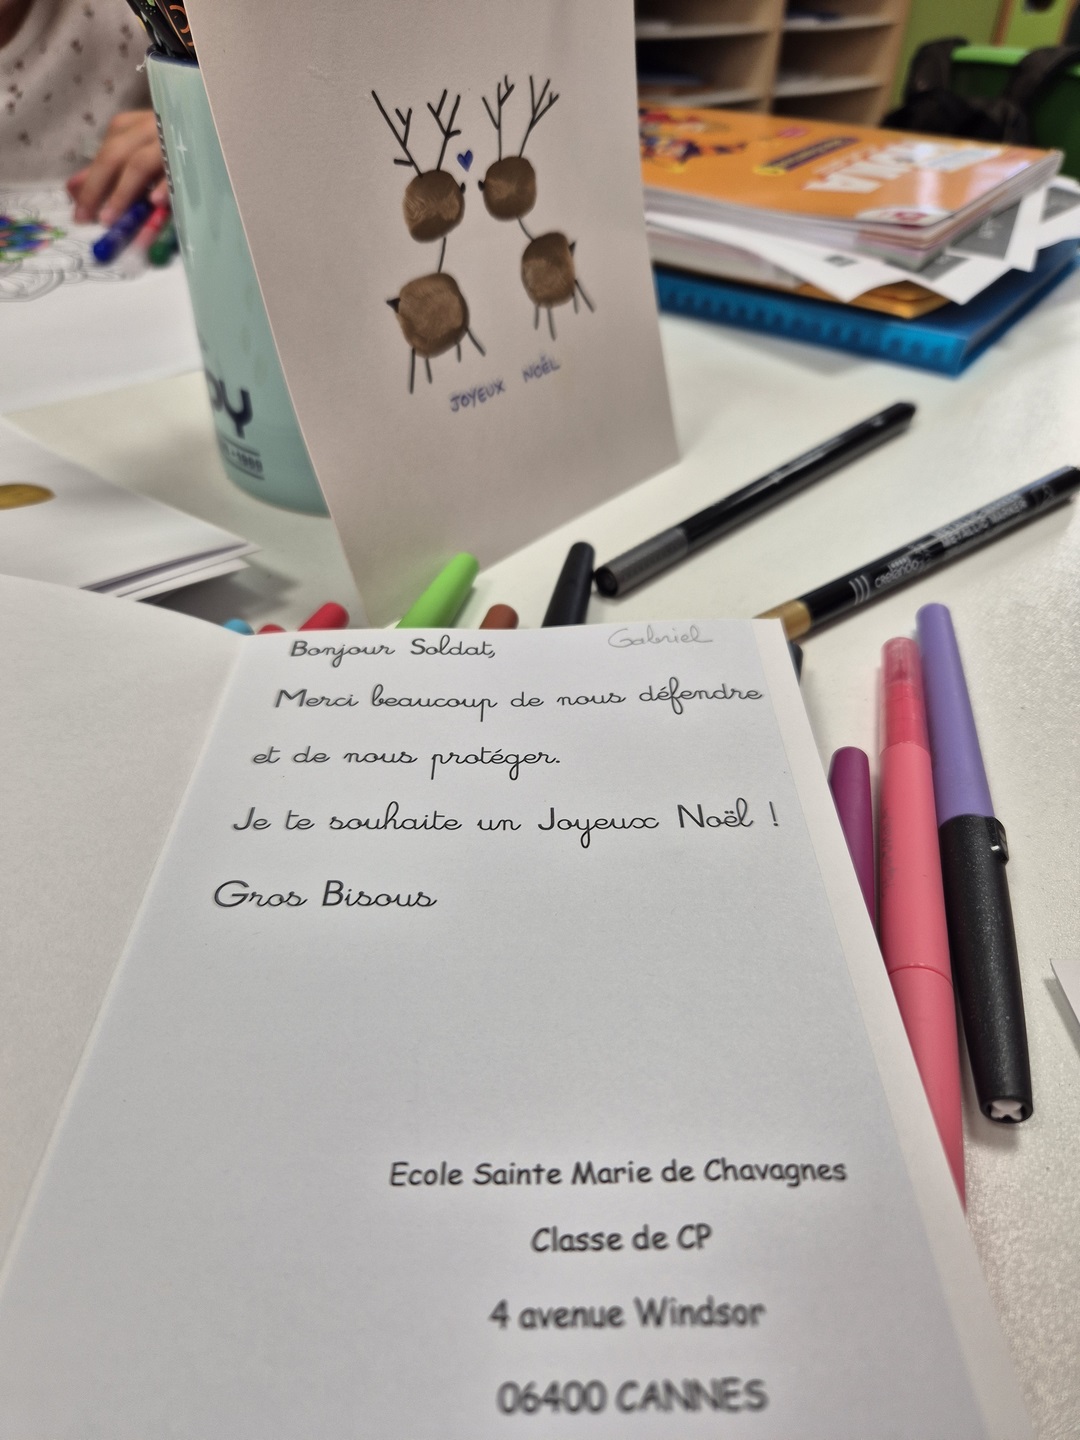 JOYEUX NOËL
Gabriel
Bonjour Soldat,
Merci beaucoup de nous défendre
et de nous protéger.
Je te souhaite un Joyeux Noël !
Gros Bisous
Ecole Sainte Marie de Chavagnes
Classe de CP
4 avenue Windsor
06400 CANNES